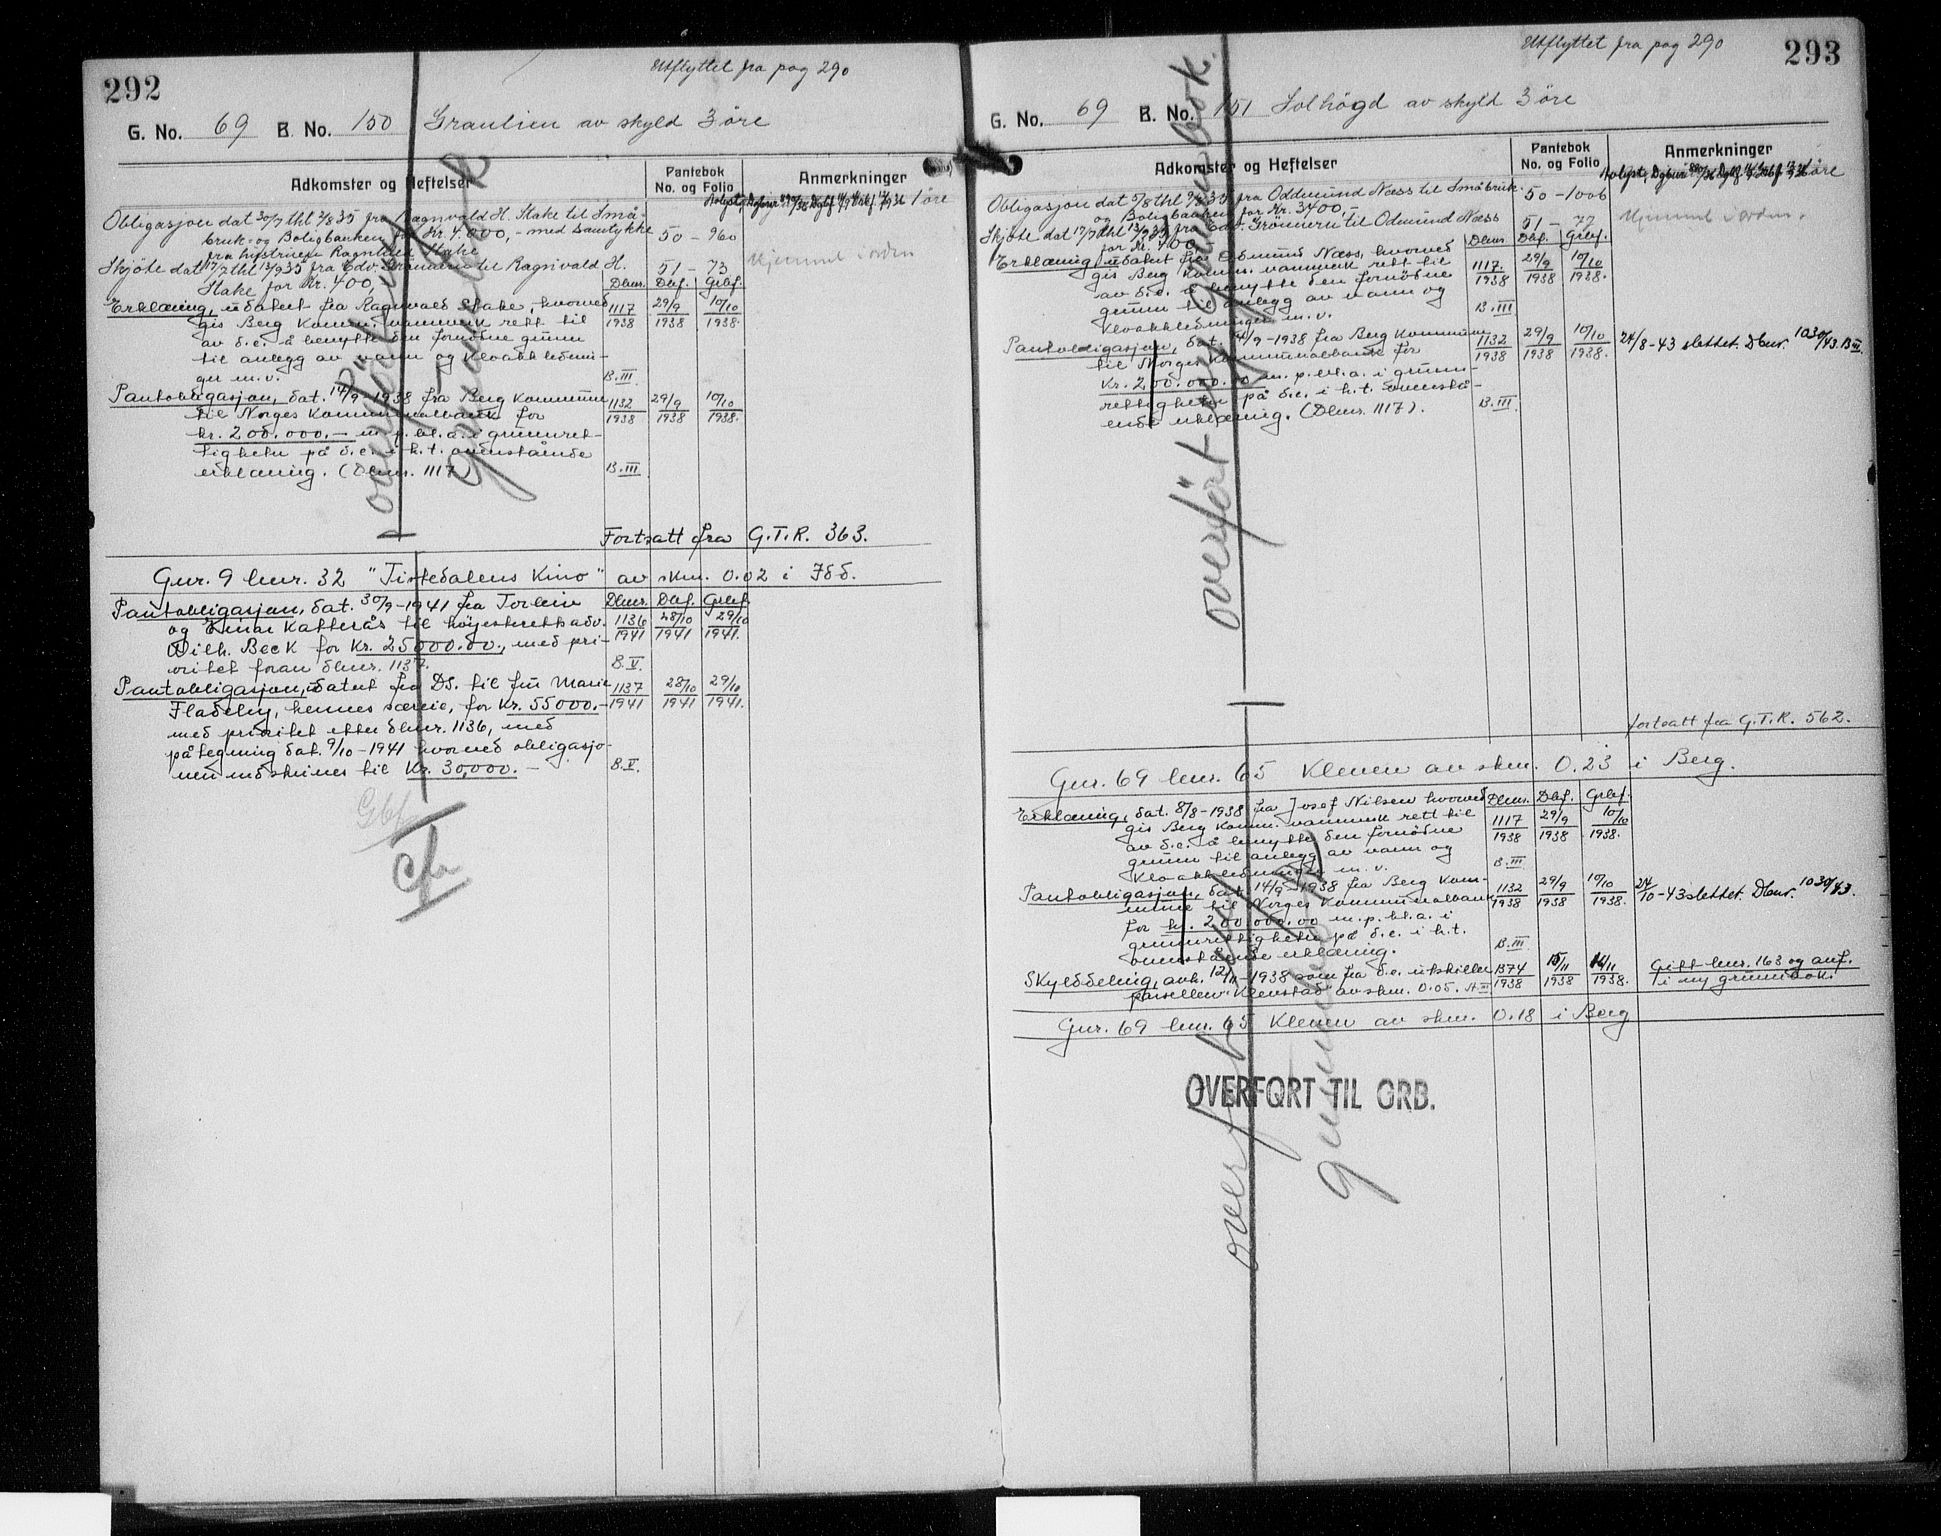 292
Utflyttet fra pag 290
G. No. 69 B. No. 150 Granlien av skyld 3 øre
Adkomster og Heftelser
Pantebok
No. og Folio
Anmerkninger
1 øre
Obligasjon dat 30/7 thl 2/8 35 fra Ragnvald H. Stake til Små-
bruk- og Boligbanken for Kr. 4.000,- med samtykke 50 - 960
fra hustruen Ragnhild Stake
Hjemmel i orden
Skjøte dat 17/7 thl 13/9 35 fra Edv. til Ragnvald H. 51 - 73
Stake for Kr. 400,- Dbnr. Dbf. Grbf.
Erklæring, udatert fra Ragnvald Stake, hvorved 1117/1938 29/9 1938 10/10 1938.
gis Berg Komm. vannverk rett til
av d.e. å benytte den fornødne grunn
til anlegg av vann og kloakklednin-
ger m.v. B.III
Pantobligasjon, dat. 14/9-1938 fra Berg Kommune 1132/1938 29/9 1938 10/10 1938.
til Norges Kommunalbank for
kr. 200.000.- m.p.bl.a. i grunnret-
tigheter på d.e. i h.t. ovenstående
erklæring. (Dbnr. 1117) B.III
overført
ny
grunnbok
Fortsatt fra G.T.R. 363.
Gnr. 9 bnr. 32 "Tistedalens Kino" av skm. 0.02 i Idd.
Pantobligasjon, dat. 30/9-1941 fra Torleiv Dbnr. Dbf. Grbf.
og Einar Katterås til høyesterettsadv. 1136/1941 28/10 1941 29/10 1941.
Wilh. Beck for Kr. 25000.00, med pri-
oritet foran dbnr. 1137. B.V.
Pantobligasjon, udatert fra DS. til fru Marie 1137/1941 28/10 1941 29/10 1941.
Fladeby, hennes særeie, for Kr. 55000.-
med prioritet etter dbnr. 1136, med
påtegning dat. 9/10-1941 hvorved obligasjo-
nen nedskrives til Kr. 30,000.- B.V.
293
Utflyttet fra pag 290
G. No. 69 B. No. 151 Solhøgd av skyld 3 øre
Adkomster og Heftelser
Pantebok
No. og Folio
Anmerkninger
øre
Obligasjon dat 5/8 thl 9/8 35 fra Oddmund Næss til Småbruk- 50 - 1006
og Boligbanken for Kr. 3400,-
Hjemmel i orden.
Skjøte dat 17/7 thl 13/9 35 fra Edv. til Odmund Næss 51 - 72
for Kr. 400 Dbnr. Dbf. Grbf.
Erklæring udatert fra Odmund Næss, hvorved 1117/1938 29/9 1938 10/10 1938.
gis Berg Komm. vannverk rett til
av d.e. å benytte den fornødne
grunn til anlegg av vann og
kloakkledninger m.v. B.III
Pantobligasjon, dat. 14/9-1938 fra Berg Kommune 1132/1938 29/9 1938 10/10 1938. 24/8-43 slettet. Dbnr. 1030/43. B III
til Norges Kommunalbank for
Kr. 200.000.00 m.p.bl.a. i grunn-
rettigheter på d.e. i h.t. ovenstå-
ende erklæring. (Dbnr. 1117). B.III
overført ny grunnbok.
fortsatt fra G.T.R. 562.
Gnr. 69 bnr. 65 Kleven av skm. 0.23 i Berg.
Erklæring, dat. 8/8-1938 fra Josef Nilsen hvorved Dbnr. Dbf. Grbf.
gis Berg Komm. vannverk rett til 1117/1938 29/9 1938 10/10 1938.
av d.e. å benytte den fornødne
grunn til anlegg av vann og
kloakkledninger m.v. B.III
Pantobligasjon, dat. 14/9-1938 fra Berg Kom- 1132/1938 29/9 1938 10/10 1938. 24/10-43 slettet. Dbnr. 1030/43.
mune til Norges Kommunalbank
for kr. 200.000.00 m.p.bl.a. i
grunnrettigheter på d.e. i h.t.
ovenstående erklæring. B.III
Skylddeling, avh. 12/11-1938 som fra d.e. utskiller 1374/1938 15/11 1938 16/11 1938. Gitt bnr. 163 og anf.
parsellen "Klevstad" av skm. 0.05. A III i ny grunnbok.
Gnr. 69 bnr. 65 Kleven av skm. 0.18 i Berg
OVERFØRT TIL GRB.
overført ny
grunnbok